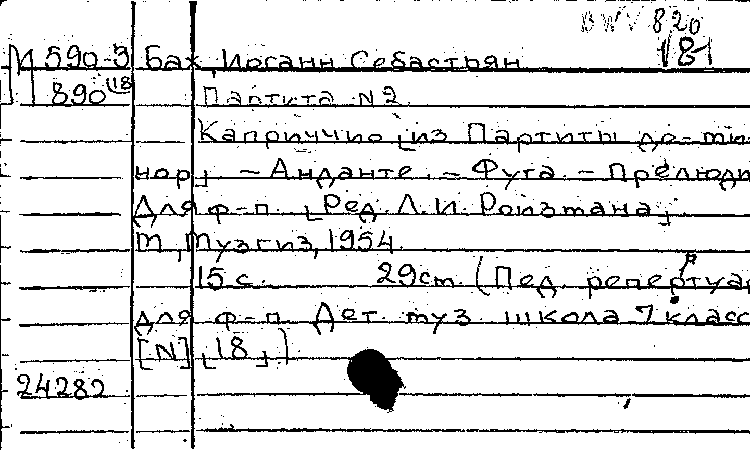 BWV 820
181
М 590-3 Бах, Иоганн Себастьян
890 (18 Партита N2.
Каприччио ⌊из Партиты до-ми-
нор⌋ – Анданте. – Фуга. – Прелюди
Для ф-п. ⌊Ред. Л. И. Ройзмана⌋.
М, Музгиз, 1954.
15 с. 29 см. (Пед. репертуар
для ф-п. Дет. муз. школа 7 класс
[N] ⌊18⌋)
24282